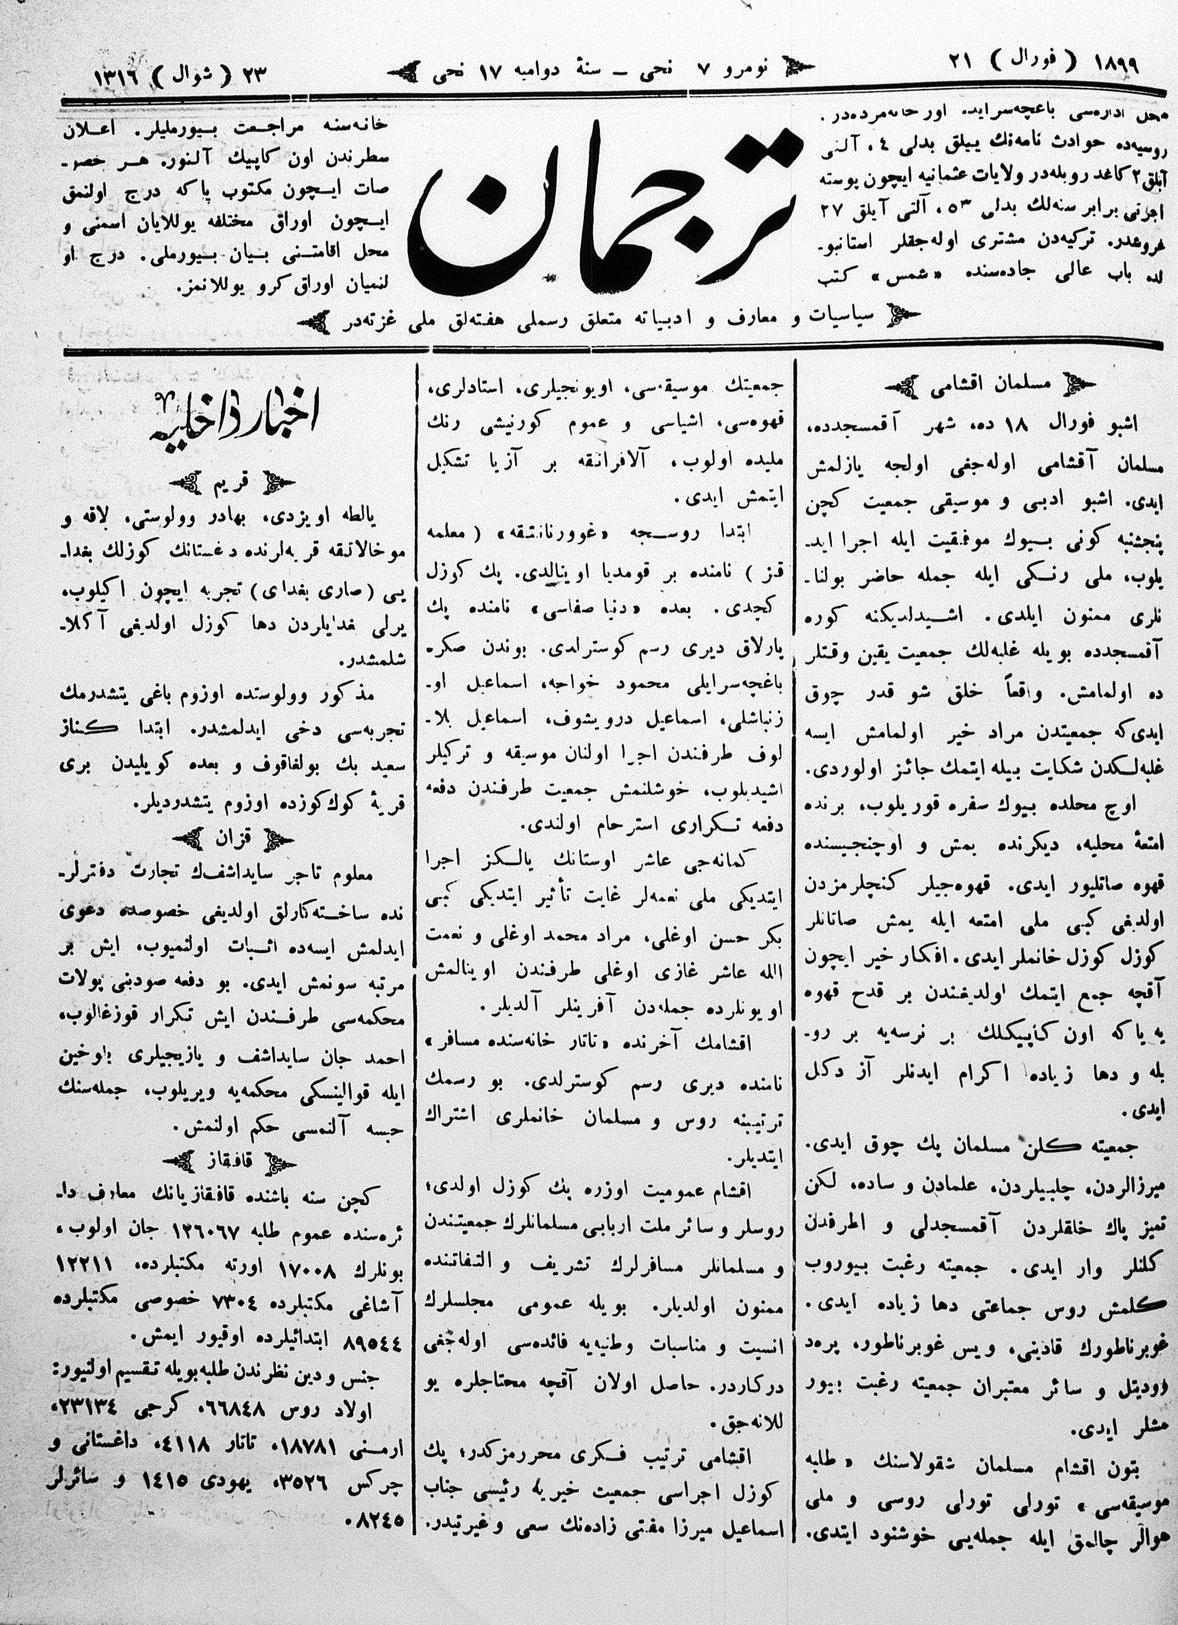 ١٨٩٩ (فورال) ٢١
نومرو ٧ نحی — سنهٔ دوامیه ١٧ نحی
٢٣ (شوال) ١٣١٦
محل اداره‌سی باغچه‌سرایده. اور خانه‌مرده‌در.
روسیه‌ده حوادث نامه‌نك ییللق بدلی ٤، آلتی
آیلق ٢ كاغد روبله‌در ولایات عثمانیه ایچون پوسته
اجرتی برابر سنه‌لك بدلی ٥٣، آلتی آیلق ٢٧
غروشدر. تركیه‌دن مشتری اوله‌جقلر استانبو-
لده باب عالی جاده‌سنده «شمس» كتب
ترجمان
خانه‌سنه مراجعت بیورملیلر. اعلان
سطرندن اون كاپیك آلنور. هر خصو-
صات ایچون مكتوب یاكه درج اولنمق
ایچون اوراق مختلفه یوللایان اسمنی و
محل اقامتنی بیان بیورملی. درج او
لنمیان اوراق كرو یوللانمز.
سیاسیات و معارف و ادبیاته متعلق رسملی هفته‌لق ملی غزته‌در
مسلمان اقشامی
اشبو فورال ١٨ ده، شهر آقمسجدده،
مسلمان آقشامی اوله‌جغی اولجه یازلمش
ایدی. اشبو ادبی و موسیقی جمعیت كچن
پنجشنبه كونی بیوك موفقیت ایله اجرا اید-
یلوب، ملی رنكی ایله جمله حاضر بولنا-
نلری ممنون ایلدی. اشیدلدیكنه كوره
آقمسجدده بویله غلبه‌لك جمعیت یقین وقتلر
ده اولمامش. واقعاً خلق شو قدر چوق
ایدی‌كه جمعیتدن مراد خیر اولمامش ایسه
غلبه‌لكدن شكایت بیله ایتمك جائز اولوردی.
اوچ محلده بیوك سفره قوریلوب، برنده
امتعهٔ محلیه، دیكرنده یمش و اوچنجیسنده
قهوه صاتلیور ایدی. قهوه‌جیلر كنچلرمزدن
اولدیغی كبی ملی امتعه ایله یمش صاتانلر
كوزل كوزل خانملر ایدی. افكار خیر ایچون
آقچه جمع ایتمك اولدیغندن بر قدح قهوه
یه یاكه اون كاپیكلك بر نرسه‌یه بر رو-
بله و دها زیاده اكرام ایدنلر آز دكل
ایدی.
جمعیته كلن مسلمان پك چوق ایدی.
میرزالردن، چلبیلردن، علمادن و ساده، لكن
تمیز پاك خلقلردن آقمسجدلی و اطرفدن
كلنلر وار ایدی. جمعیته رغبت بیوروب
كلمش روس جماعتی دها زیاده ایدی.
غوبرناطورك قادینی، ویس غوبرناطور، پره‌د
وودیتل و سائر معتبران جمعیته رغبت بیور
مشلر ایدی.
بتون اقشام مسلمان شقولاسنك «طلبه
موسیقه‌سی» تورلی تورلی روسی و ملی
هوالر چالمق ایله جمله‌یی خوشنود ایتدی.
جمعیتك موسیقه‌سی، اویونجیلری، استادلری،
قهوه‌سی، اشیاسی و عموم كورنیشی رنك
ملیده اولوب، آلافرانقه بر آزیا تشكیل
ایتمش ایدی.
ابتدا روسجه «غوورنانتقه» (معلمه
قز) نامنده بر قومدیا اوینالدی. پك كوزل
كچدی. بعده «دنیا صفاسی» نامنده پك
پارلاق دیری رسم كوسترلدی. بوندن صكره
باغچه‌سرایلی محمود خواجه، اسماعیل او-
زنباشلی، اسماعیل درویشوف، اسماعیل بلا-
لوف طرفندن اجرا اولنان موسیقه و تركیلر
اشیدیلوب، خوشلنمش جمعیت طرفندن دفعه
دفعه تكراری استرحام اولندی.
كمانه‌جی عاشر اوستانك یالكز اجرا
ایتدیكی ملی نغمه‌لر غایت تأثیر ایتدیكی كبی
بكر حسن اوغلی، مراد محمد اوغلی و نعمت
الله عاشر غازی اوغلی طرفندن اوینالمش
اویونلرده جمله‌دن آفرینلر آلدیلر.
اقشامك آخرنده «تاتار خانه‌سنده مسافر»
نامنده دیری رسم كوسترلدی. بو رسمك
ترتیبنه روس و مسلمان خانملری اشتراك
ایتدیلر.
اقشام عمومیت اوزره پك كوزل اولدی؛
روسلر و سائر ملت اربابی مسلمانلرك جمعیتندن
و مسلمانلر مسافرلرك تشریف و التفاتنده
ممنون اولدیلر. بویله عمومی مجلسلرك
انسیت و مناسبات وطنیه‌یه فائده‌سی اوله‌جغی
دركاردر. حاصل اولان آقچه محتاجلره یو
للانه‌جق.
اقشامی ترتیب فكری محررمزكدر؛ پك
كوزل اجراسی جمعیت خیریه رئیسی جناب
اسماعیل میرزا مفتی زاده‌نك سعی و غیرتیدر.
اخبار داخلیه
قریم
یالطه اویزدی، بهادر وولوستی، لاقه و
موخالاتقه قریه‌لرنده دغستانك كوزلك بغدا-
یی (صاری بغدای) تجربه ایچون اكیلوب،
یرلی بغدایلردن دها كوزل اولدیغی آكلا-
شلمشدر.
مذكور وولوستده اوزوم باغی یتشدرمك
تجربه‌سی دخی ایدلمشدر. ابتدا كناز
سعید بك بولغاقوف و بعده كویلیدن بری
قریهٔ كوك‌كوزده اوزوم یتشدردیلر.
قزان
معلوم تاجر سایداشفك تجارت دفترلر-
نده ساخته‌كارلق اولدیغی خصوصده دعوی
ایدلمش ایسه‌ده اثبات اولنمیوب، ایش بر
مرتبه سونمش ایدی. بو دفعه صودنی پولات
محكمه‌سی طرفندن ایش تكرار قوزغالوب،
احمد جان سایداشف و یازیجیلری باوخین
ایله قوالینسكی محكمه‌یه ویریلوب، جمله‌سنك
حبسه آلنمسی حكم اولنمش.
قافقاز
كچن سنه باشنده قافقازیانك معارف دا-
ئره‌سنده عموم طلبه ١٢٦٠٦٧ جان اولوب،
بونلرك ١٧٠٠٨ اورته مكتبلرده، ١٢٢١١
آشاغی مكتبلرده ٧٣٠٤ خصوصی مكتبلرده
٨٩٥٤٤ ابتدائیلرده اوقیور ایمش.
جنس و دین نظرندن طلبه بویله تقسیم اولنیور:
اولاد روس ٦٦٨٤٨، كرجی ٢٣١٣٤،
ارمنی ١٨٧٨١، تاتار ٤١١٨، داغستانی و
چركس ٣٥٢٦، یهودی ١٤١٥ و سائرلر
٨٢٤٥.